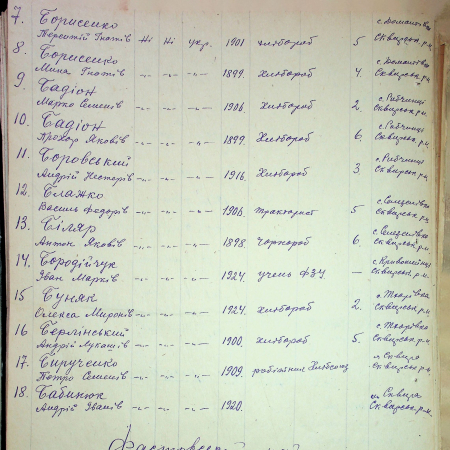 7. Борисенко с. Домантівка
Терентій Гнатів Ні Ні укр. 1901 хлібороб 5 Сквирськ. р-н.
8. Борисенко с. Домантівка
Мина Гнатів -"- -"- -"- 1899. Хлібороб 4. Сквирськ. р-н.
9. Бадіон с. Рибчинці
Марко Семенів -"- -"- -"- 1906. хлібороб 2. Сквирськ. р-н.
10. Бадіон с. Рибчинці
Прохор Яковів -"- -"- -"- 1899. Хлібороб 6. Сквирськ. р-н.
11. Боровський с. Рибчинці
Андрій Несторів -"- -"- -"- 1916. Хлібороб 3 Сквирськ. р-н.
12. Блажко
Василь Федорів -"- -"- -"- 1906. тракторист 5 Сквирськ. р-н.
13. Біляр
Антон Яковів -"- -"- -"- 1898. чорнороб 6. Сквирськ. р-н.
14. Бородійчук
Іван Марків -"- -"- -"- 1924. учень ФЗУ — Сквирськ. р-н.
15 Буняк
Олекса Миронів -"- -"- -"- 1924. хлібороб 2. Сквирськ. р-н.
16 Берлінський
Андрій Лукашів -"- -"- -"- 1900. хлібороб 5. Сквирськ. р-н.
17. м. Сквира
Петро Семенів -"- -"- -"- 1909. робітник Сквирськ. р-н.
18. Бабинюк м. Сквира
Андрій Іванів -"- -"- -"- 1920. Сквирськ. р-н.